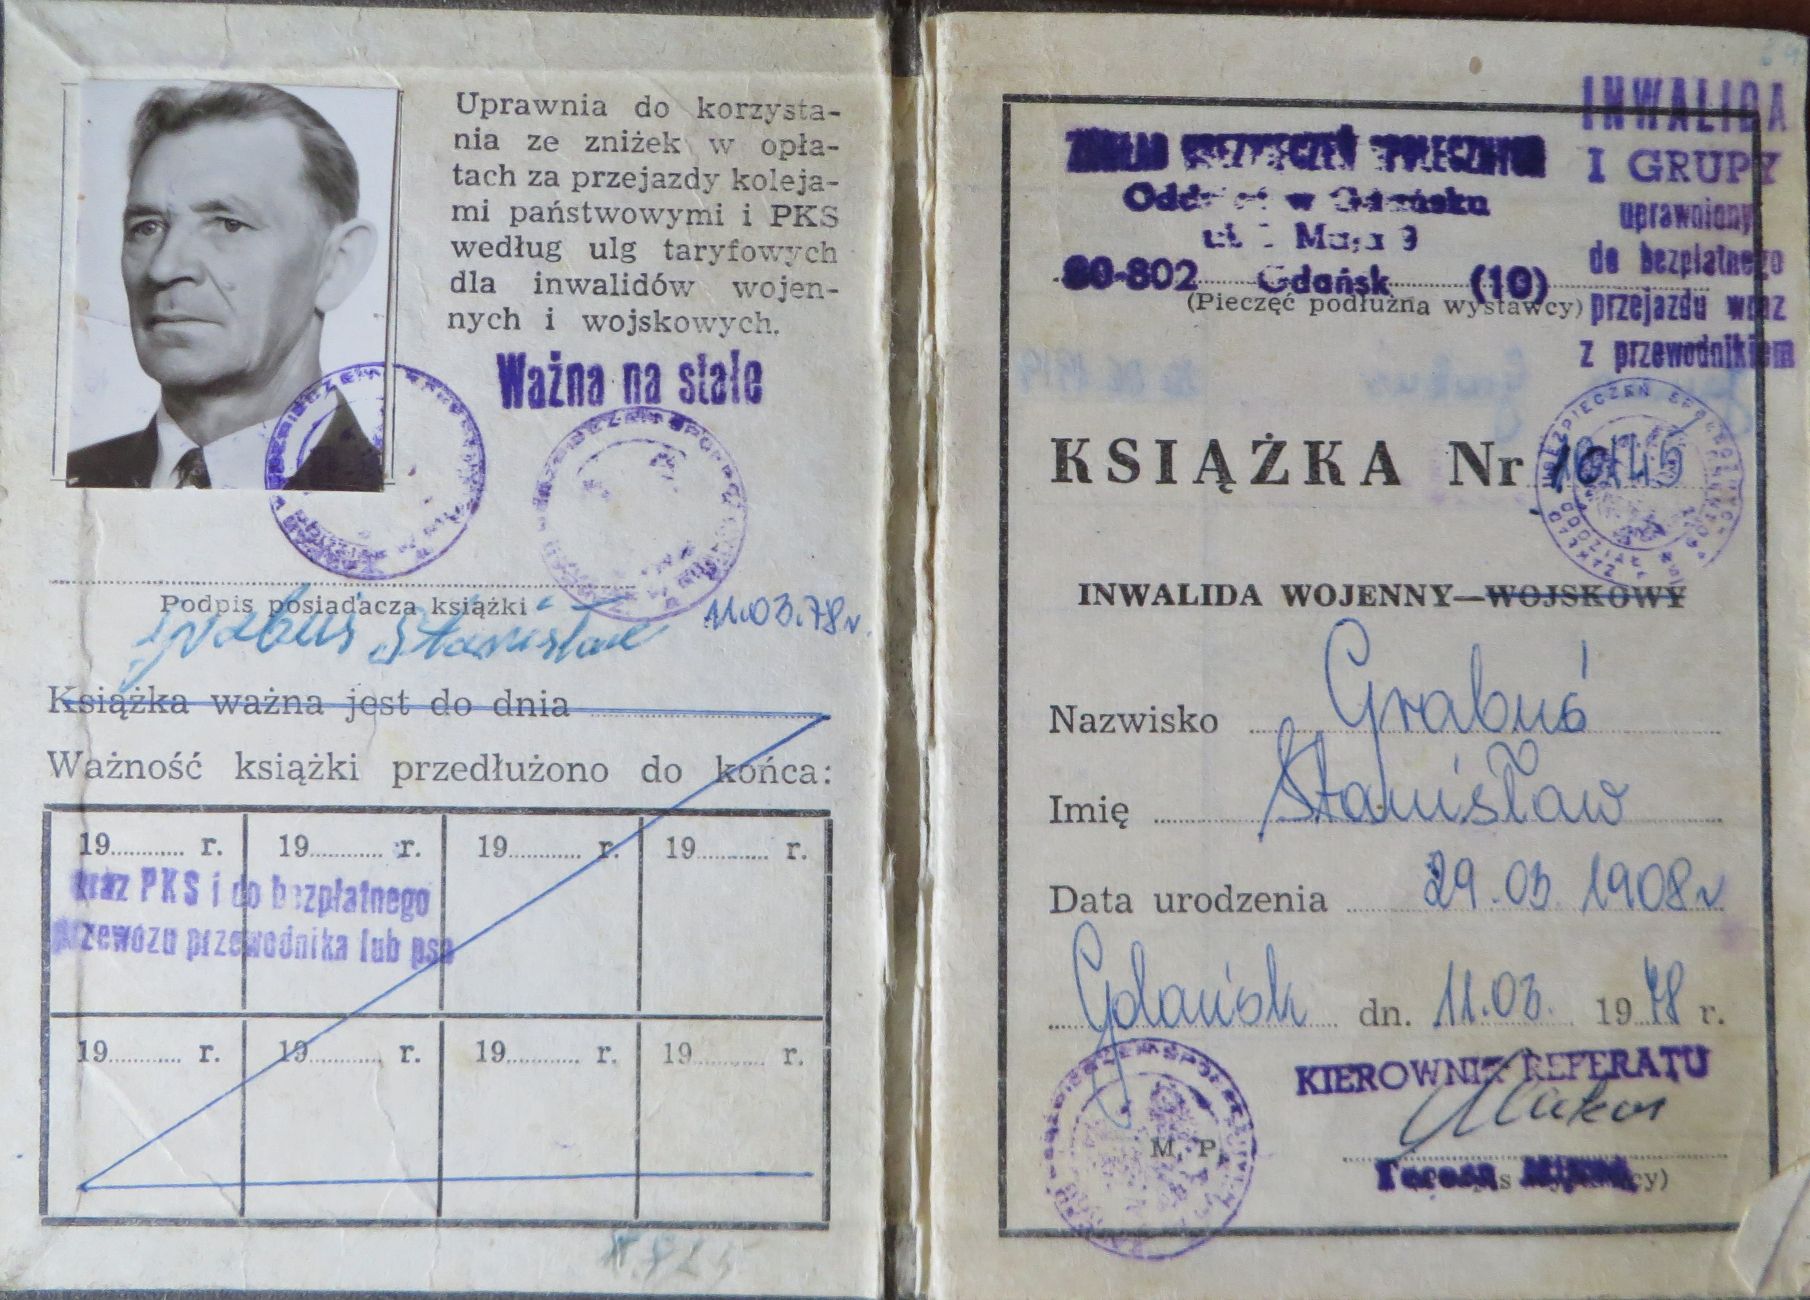 Uprawnia do korzysta-
nia ze zniżek w opła-
tach za przejazdy koleja-
mi państwowymi i PKS
według ulg taryfowych
dla inwalidów wojen-
nych i wojskowych.
Ważna na stałe
Podpis posiadacza książki
Grabuś Stanisław
11.03.78r.
Książka ważna jest do dnia
Ważność książki przedłużono do końca:
19 r. 19 r. 19 r. 19 r.
oraz PKS i do bezpłatnego
przewozu przewodnika lub psa
19 r. 19 r. 19 r. 19 r.
INWALIDA
I GRUPY
uprawniony
do bezpłatnego
przejazdu wraz
z przewodnikiem
ZAKŁAD UBEZPIECZEŃ SPOŁECZNYCH
Oddział w Gdańsku
ul. Maja 9
80-802 Gdańsk (10)
(Pieczęć podłużna wystawcy)
KSIĄŻKA Nr
INWALIDA WOJENNY—WOJSKOWY
Nazwisko Grabuś
Imię Stanisław
Data urodzenia 29.03.1908r
Gdańsk dn. 11.03. 1978 r.
KIEROWNIK REFERATU
M. P.
Teresa